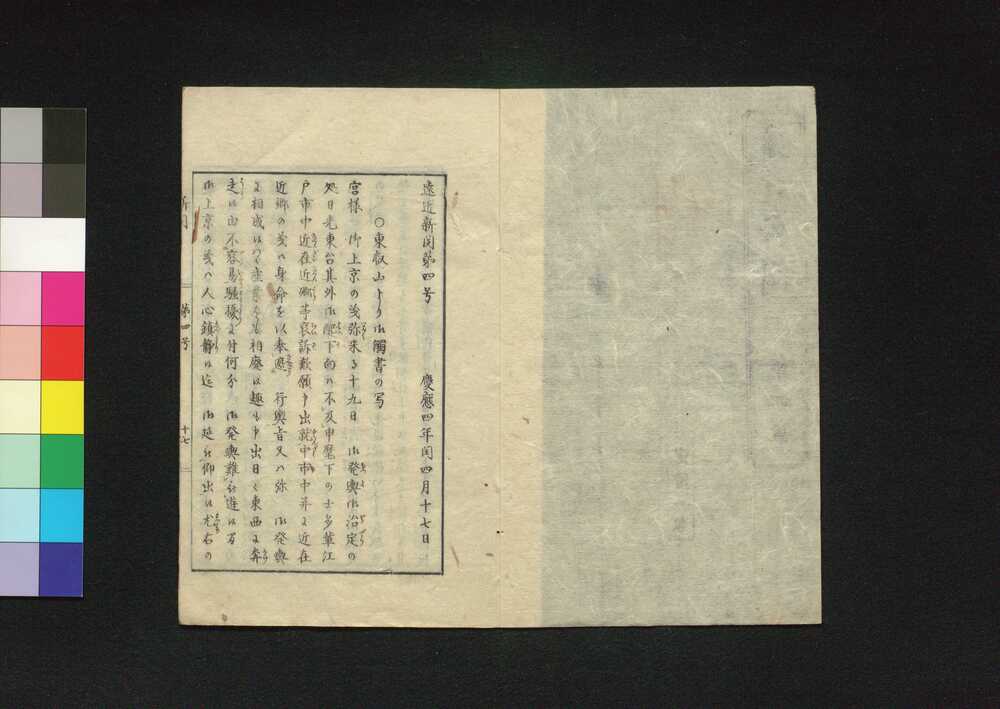 遠近新聞第四号　慶應四年閏四月十七日
○東叡山より御触書の写
宮様　御上京の義弥来る十九日　御発輿御治定の
処日光東台其外御配下向ハ不及申麾下の士多華江
戸市中近在近郷等哀訴歎願申出就中市中并に近在
近郷の義ハ身命を以奉遮　行輿旨又ハ弥　御発輿
に相成候ハヽ産業をも相廃候趣も申出日々東西に奔
走候由不容易騒擾に付何分　御発輿難被遊候間
御上京の義ハ人心鎮静候迄　御延被仰出候尤右の
新聞　第四号　十七